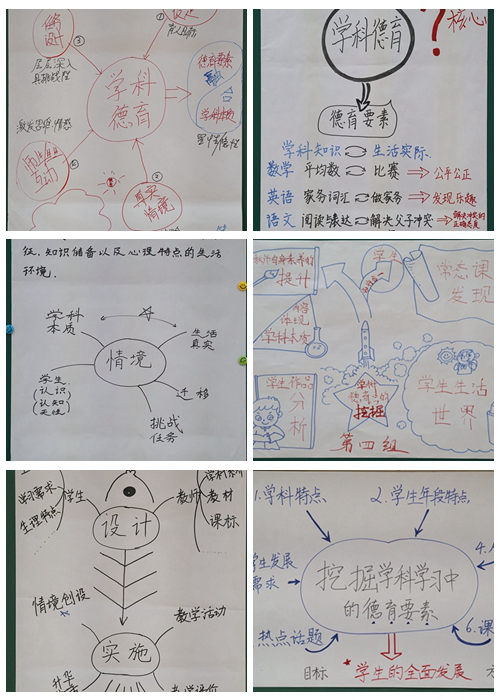 设计
③
①
育人目标
层层深入
具挑战性
学科
德育
德育要素
学科本质
激发
师生
互动
⑤
②
真实
情境
学科德育
?
核心
德育要素
学科知识
生活实际
数学
平均数
比赛
公平公正
英语
家务词汇
做家务
发现乐趣
语文
阅读与表达
解决父子冲突
解决冲突的
正确态度
征、知识储备以及心理特点的生活
环境。
学科
本质
生活
真实
情境
学生
认识
认知
迁移
挑战
任务
提升
学生
常态课
发现
内容
体现
学科本质
学生作品
分析
学科
挖掘
学生生活
世界
第四组
学习需求
生理特点
学生
教师
教材
课标
设计
情境创设
教学活动
实施
升华
1.学科特点
2.学生年段特点
学生发展
需求
4.
挖掘学科学习中
的德育要素
热点话题
6.课
目标
★学生的全面发展